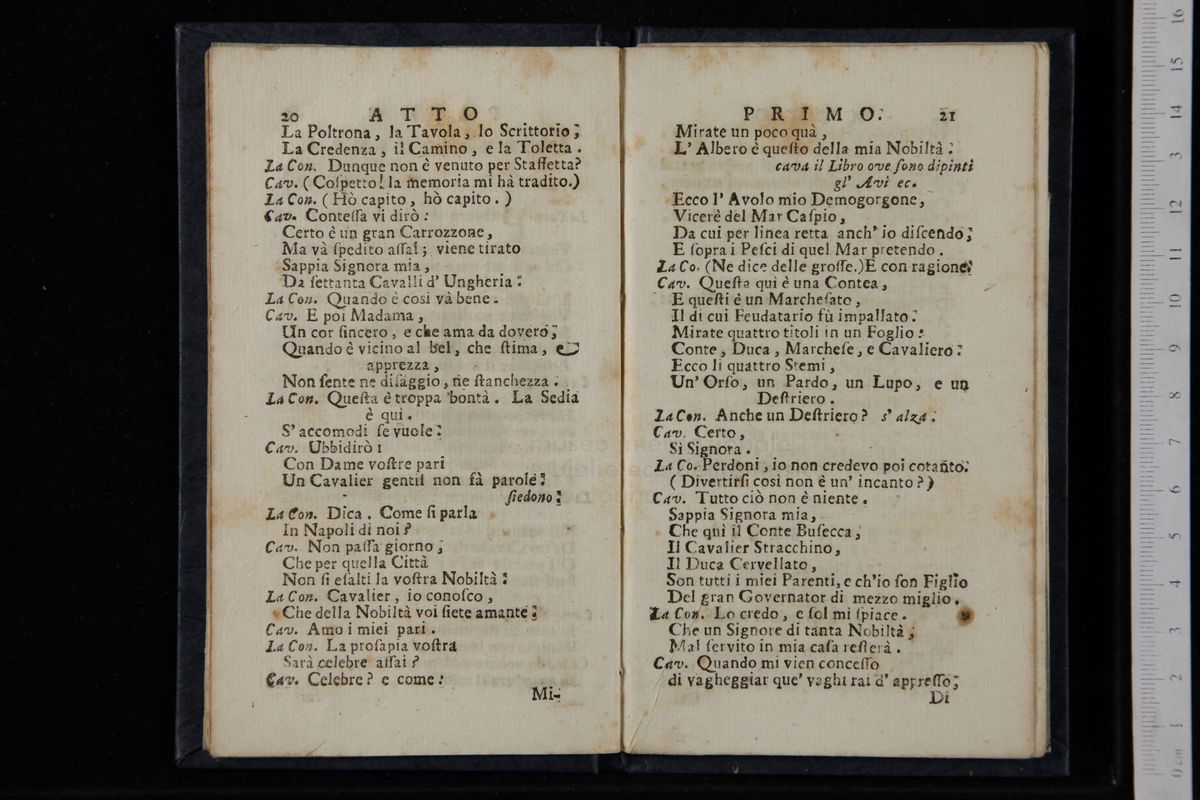 20 ATTO
La Poltrona, la Tavola, lo Scrittorio;
La Credenza, il Camino, e la Toletta.
La Con. Dunque non è venuto per Staffetta?
Cav. (Coſpetto! la memoria mi hà tradito.)
La Con. (Hò capito, hò capito.)
Cav. Conteſſa vi dirò:
Certo è un gran Carrozzone,
Ma và ſpedito aſſai; viene tirato
Sappia Signora mia,
Da ſettanta Cavalli d' Ungheria:
La Con. Quando è così và bene.
Cav. E poi Madama,
Un cor ſincero, e che ama da dovero;
Quando è vicino al bel, che ſtima, &
apprezza,
Non ſente ne diſaggio, ne ſtanchezza.
La Con. Queſta è troppa bontà. La Sedia
è qui.
S' accomodi ſe vuole:
Cav. Ubbidirò:
Con Dame voſtre pari
Un Cavalier gentil non fà parole:
ſiedono:
La Con. Dica. Come ſi parla
In Napoli di noi?
Cav. Non paſſa giorno,
Che per quella Città
Non ſi eſalti la voſtra Nobiltà:
La Con. Cavalier, io conoſco,
Che della Nobiltà voi ſiete amante:
Cav. Amo i miei pari.
La Con. La proſapia voſtra
Sarà celebre aſſai?
Cav. Celebre? e come:
Mi-
PRIMO. 21
Mirate un poco quà,
L' Albero è queſto della mia Nobiltà:
cava il Libro ove ſono dipinti
gl' Avi ec.
Ecco l' Avolo mio Demogorgone,
Vicerè del Mar Caſpio,
Da cui per linea retta anch' io diſcendo;
E ſopra i Peſci di quel Mar pretendo.
La Co. (Ne dice delle groſſe.) E con ragione:
Cav. Queſta quì è una Contea,
E queſti è un Marcheſato,
Il di cui Feudatario fù impallato:
Mirate quattro titoli in un Foglio:
Conte, Duca, Marcheſe, e Cavaliero:
Ecco li quattro Stemi,
Un' Orſo, un Pardo, un Lupo, e un
Deſtriero.
La Con. Anche un Deſtriero? s' alza:
Cav. Certo,
Sì Signora.
La Co. Perdoni, io non credevo poi cotanto:
(Divertirſi così non è un' incanto?)
Cav. Tutto ciò non è niente.
Sappia Signora mia,
Che quì il Conte Buſecca,
Il Cavalier Stracchino,
Il Duca Cervellato,
Son tutti i miei Parenti, e ch'io ſon Figlio
Del gran Governator di mezzo miglio.
La Con. Lo credo, e ſol mi ſpiace.
Che un Signore di tanta Nobiltà,
Mal ſervito in mia caſa reſterà.
Cav. Quando mi vien conceſſo
di vagheggiar que' vaghi rai d' appreſſo;
Di
16
15
14
13
12
11
10
9
8
7
6
5
4
3
2
1
0 cm